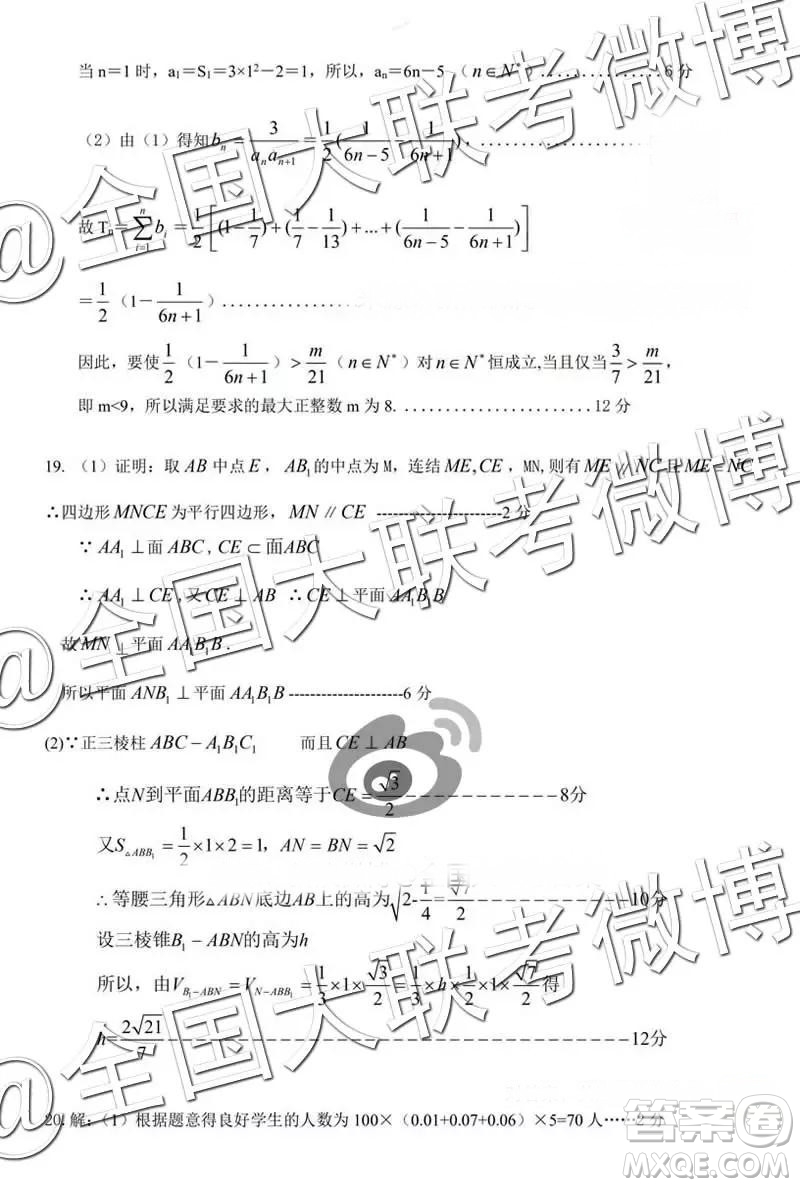 当 n＝1 时，a₁＝S₁＝3×1²－2＝1，所以，aₙ＝6n－5（n∈N*）................6 分
（2）由（1）得知 bₙ＝3/(aₙaₙ₊₁)＝1/2(1/(6n－5)－1/(6n＋1))，
故 Tₙ＝∑ᵢ₌₁ⁿ bᵢ＝1/2[(1－1/7)+(1/7－1/13)+...+(1/(6n－5)－1/(6n＋1))]
＝1/2（1－1/(6n＋1)）
因此，要使 1/2（1－1/(6n＋1)）＞m/21（n∈N*）对 n∈N* 恒成立,当且仅当 3/7＞m/21，
即 m<9，所以满足要求的最大正整数 m 为 8. ........................12 分
19. （1）证明：取 AB 中点 E，AB₁的中点为 M，连结 ME,CE，MN,则有 ME∥NC 且 ME＝NC
∴四边形 MNCE 为平行四边形，MN∥CE ------------------------2 分
∵ AA₁⊥面 ABC，CE⊂面ABC
∴ AA₁⊥CE，又 CE⊥AB ∴CE⊥平面 AA₁B₁B
故 MN⊥平面 AA₁B₁B．
所以平面 ANB₁⊥平面 AA₁B₁B---------------------6 分
(2)∵正三棱柱 ABC－A₁B₁C₁ 而且 CE⊥AB
∴点N到平面ABB₁的距离等于CE＝√3/2---------------8分
又S△ABB₁＝1/2×1×2＝1，AN＝BN＝√2
∴等腰三角形△ABN底边AB上的高为√(2-1/4)=√7/2---------------10分
设三棱锥B₁－ABN的高为h
所以，由V_{B₁－ABN}＝V_{N－ABB₁}＝1/3×1×√3/2＝1/3×h×1/2×1×√7/2得
h＝2√21/7---------------------12分
20.解：（1）根据题意得良好学生的人数为 100×（0.01+0.07+0.06）×5=70 人……2 分
@全国大联考微博
@全国大联考微博
@全国大联考微博
答案圈
MXQE.COM